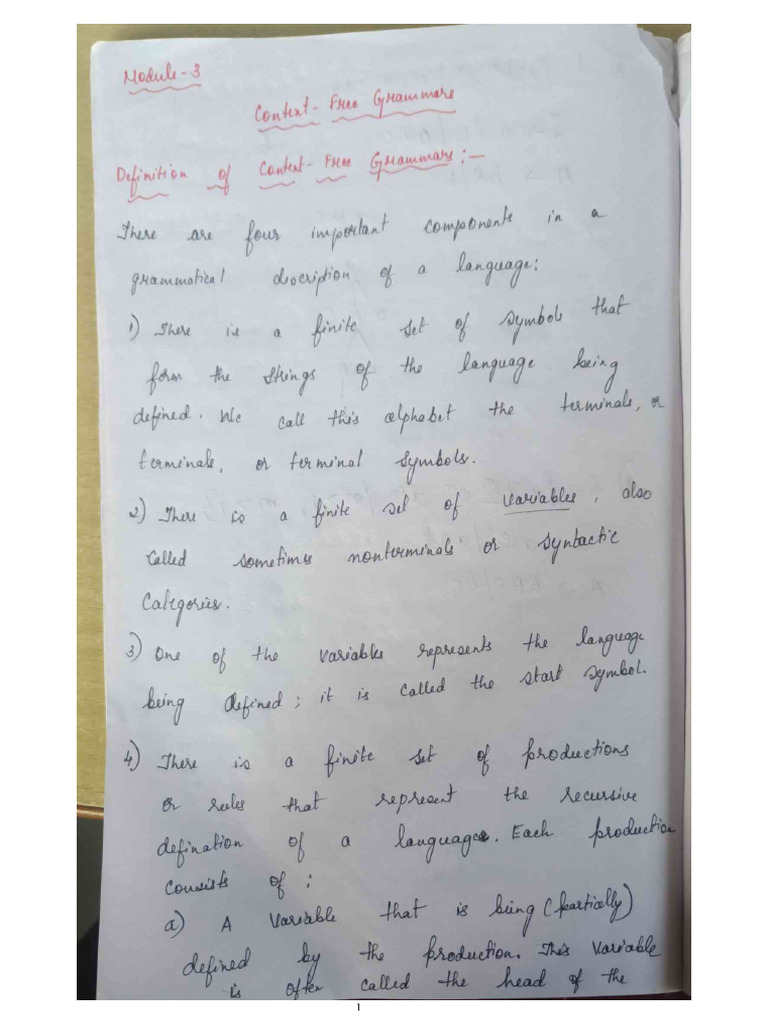 Module-3
Context-Free Grammars
Definition of Context-Free Grammars:-
There are four important components in a
grammatical discription of a language:
1) There is a finite set of symbols that
form the strings of the language being
defined. We call this alphabet the terminals, or
terminals, or terminal symbols.
2) There is a finite set of variables, also
called sometimes nonterminals or syntactic
categories.
3) One of the variables represents the language
being defined; it is called the start symbol.
4) There is a finite set of productions
or rules that represent the recursive
defination of a language. Each production
consists of:
a) A variable that is being (partially)
defined by the production. This variable
is often called the head of the
1